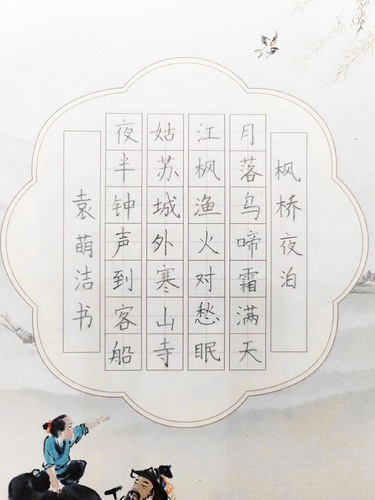 枫桥夜泊
月落乌啼霜满天
江枫渔火对愁眠
姑苏城外寒山寺
夜半钟声到客船
袁萌洁书